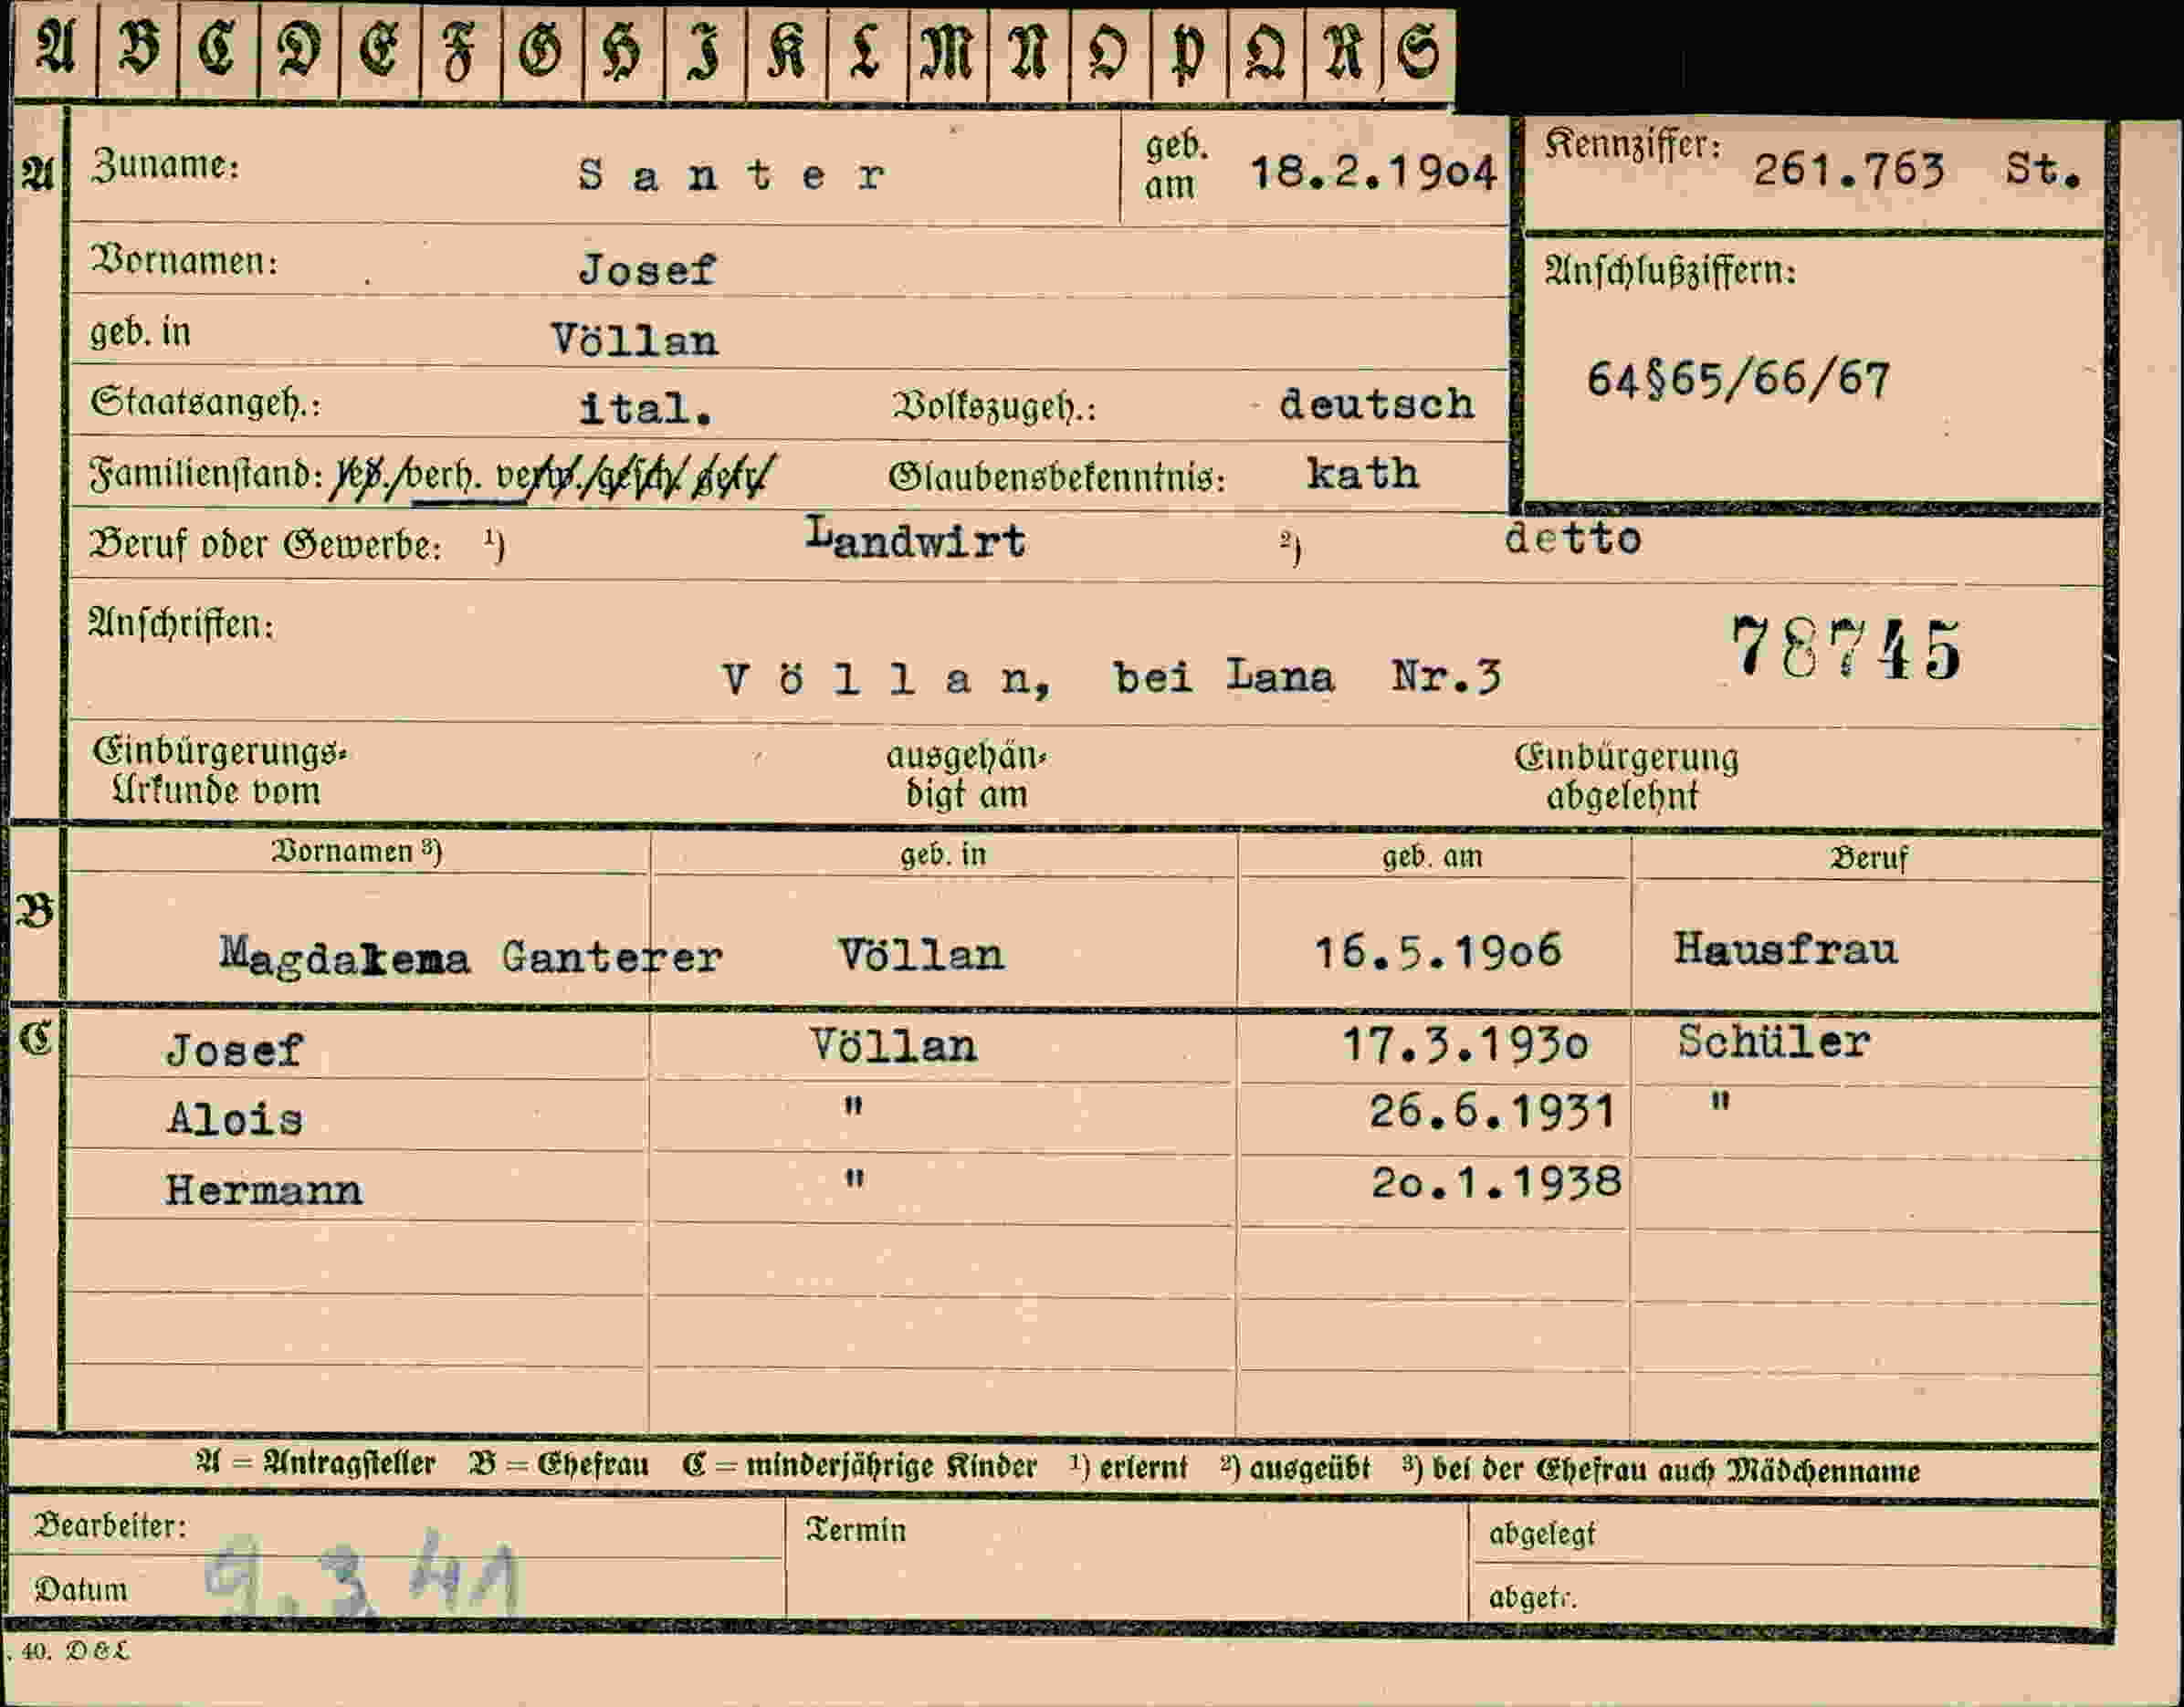 A B C D E F G H I K L M N O P Q R S
A Zuname: Santer geb. am 18.2.19o4 Kennziffer: 261.763 St.
Vornamen: Josef Anschlußziffern:
geb. in Völlan
64§65/66/67
Staatsangeh.: ital. Volkszugeh.: deutsch
Familienstand: led./verh. verw./gesch./getr. Glaubensbekenntnis: kath
Beruf oder Gewerbe: ¹) Landwirt ²) detto
Anschriften: 78745
Völlan, bei Lana Nr.3
Einbürgerungs- ausgehän- Einbürgerung
Urkunde vom digt am abgelehnt
Vornamen ³) geb. in geb. am Beruf
B
Magdalena Ganterer Völlan 16.5.19o6 Hausfrau
C Josef Völlan 17.3.193o Schüler
Alois " 26.6.1931 "
Hermann " 2o.1.1938
A = Antragsteller B = Ehefrau C = minderjährige Kinder ¹) erlernt ²) ausgeübt ³) bei der Ehefrau auch Mädchenname
Bearbeiter: Termin abgelegt
Datum 9.3 41 abgetr.
. 40. D&L